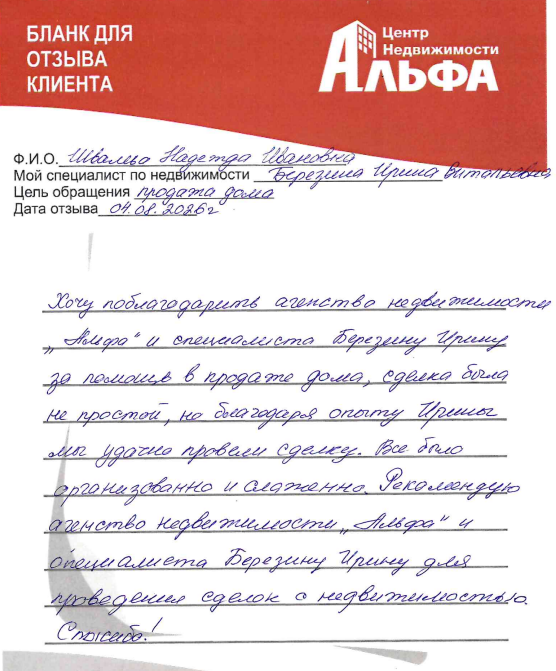 БЛАНК ДЛЯ
ОТЗЫВА
КЛИЕНТА
Центр
Недвижимости
АЛЬФА
Ф.И.О. Швалева Надежда Ивановна
Мой специалист по недвижимости Березина Ирина Витальевна
Цель обращения продажа дома
Дата отзыва 04.08.2026г
Хочу поблагодарить агенство недвижимости
„Альфа" и специалиста Березину Ирину
за помощь в продаже дома, сделка была
не простой, но благодаря опыту Ирины
мы удачно провели сделку. Все было
организованно и слаженно. Рекомендую
агенство недвижимости „Альфа" и
специалиста Березину Ирину для
проведения сделок с недвижимостью.
Спасибо!